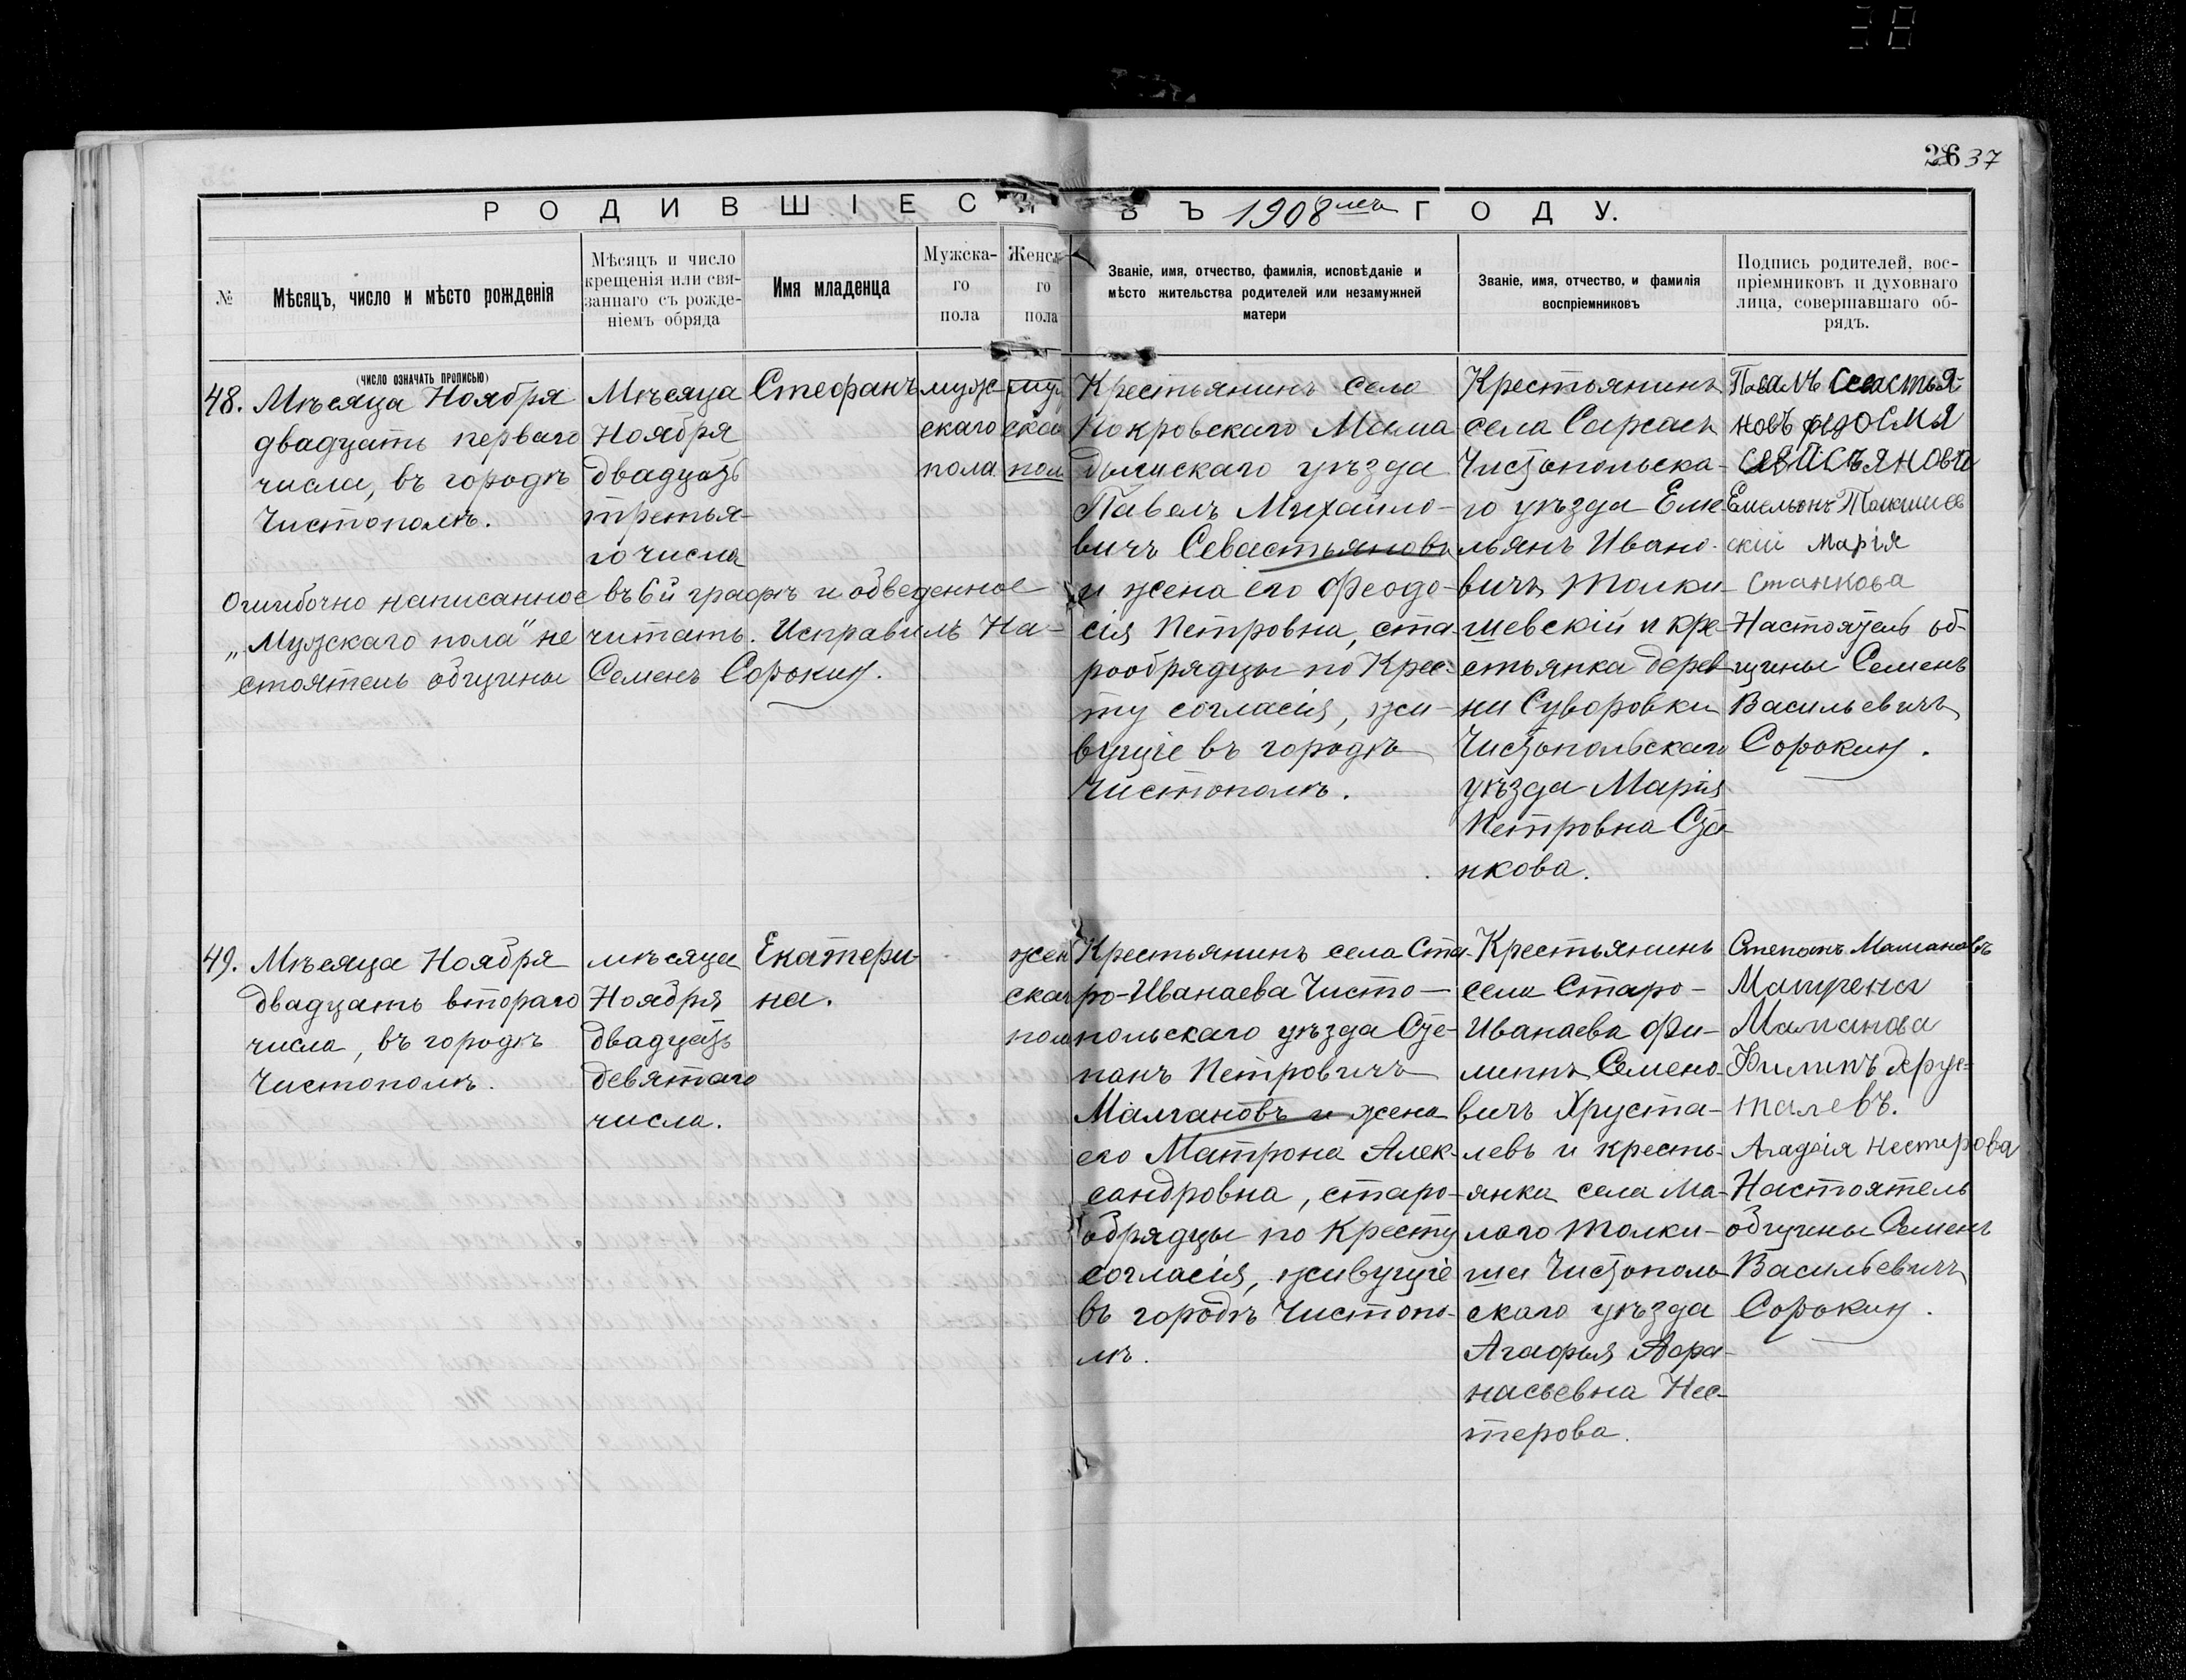 38
26 37
РОДИВШІЕСЯ ВЪ 1908мъ ГОДУ.
№
Мѣсяцъ, число и мѣсто рожденія
(число означать прописью)
Мѣсяцъ и число
крещенія или свя-
заннаго съ рожде-
ніемъ обряда
Имя младенца
Мужска-
го
пола
Женск
го
пола
Званіе, имя, отчество, фамилія, исповѣданіе и
мѣсто жительства родителей или незамужней
матери
Званіе, имя, отчество, и фамилія
воспріемниковъ
Подпись родителей, вос-
пріемниковъ и духовнаго
лица, совершавшаго об-
рядъ.
48.
Мѣсяца Ноября
двадцать перваго
числа, въ городѣ
Чистополѣ.
Мѣсяца
Ноября
двадцать
третья-
го числа
Стефанъ
муж-
скаго
пола
муж
скаго
пол
Крестьянинъ села
Покровскаго Мама
дышскаго уѣзда
Павелъ Михайло-
вичъ Севастьяновъ
и жена его Феодо-
сія Петровна, ста-
рообрядцы по Крес-
ту согласія, жи-
вущіе въ городѣ
Чистополѣ.
Крестьянинъ
села Сарсасъ
Чистопольска-
го уѣзда Еме-
льянъ Ивано-
вичъ Толки-
шевскій и кре-
стьянка дерев
ни Суворовки
Чистопольскаго
уѣзда Марія
Петровна Ста
нкова.
Павалъ Севастья-
новъ федосия
Севастьянова
Емельянъ Толкишев
скій Марія
Станкова
Настоятель об-
щины Семенъ
Васильевичъ
Сорокинъ.
Ошибочно написанное въ 6й графѣ и обведенное
„Мужскаго пола" не читать. Исправилъ На-
стоятель общины Семенъ Сорокинъ.
49.
Мѣсяца Ноября
двадцать втораго
числа, въ городѣ
Чистополѣ.
мѣсяца
Ноября
двадцать
девятаго
числа.
Екатери-
на.
жен
скаг
пола
Крестьянинъ села Ста-
ро-Иванаева Чисто-
польскаго уѣзда Сте-
панъ Петровичъ
Малгановъ и жена
его Матрона Алек-
сандровна, старо-
обрядцы по Кресту
согласія, живущіе
въ городѣ Чистопо-
лѣ.
Крестьянинъ
села Старо-
Иванаева Фи-
липпъ Семено-
вичъ Хруста-
левъ и кресть-
янка села Ма-
лаго Толки-
ша Чистополь
скаго уѣзда
Агафья Афа-
насьевна Нес-
терова.
Степанъ Малгановъ
Матрена
Малганова
Филипъ Хрус-
талевъ.
Агафія Нестерова
Настоятель
общины Семенъ
Васильевичъ
Сорокинъ.